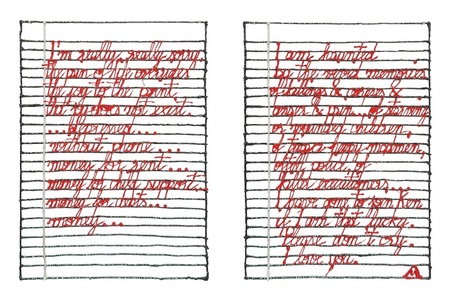 I'm really, really sorry.
the pain of life overrides
the joy to the point
that joy does not exist.
...depressed...
without phone...
money for rent...
money for child support...
money for debts...
money...
I am haunted
by the vivid memories
of killings & corpses &
anger & pain... of starving
or wounded children,
of trigger happy madmen,
often police, of
killer executioners...
I have gone to join Ken
if I am that lucky.
Please don't cry.
I love you.